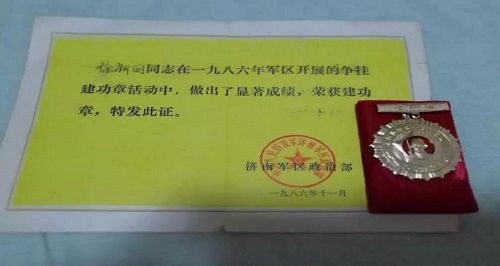 同志在一九八六年军区开展的争挂
建功章活动中，做出了显著成绩，荣获建功
章，特发此证。
济南军区政治部
一九八六年十一月